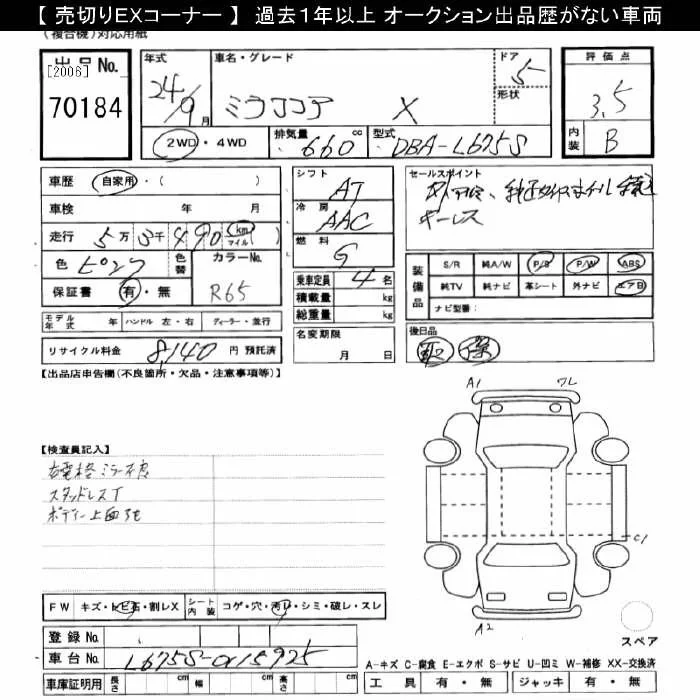 【 売切りEXコーナー 】 過去1年以上 オークション出品歴がない車両
(複合機)対応用紙
出品No. 年式 車名・グレード ドア 評価点
[2006] 24/9月 ミラココア X 5 形状 3.5
70184
2WD・4WD 排気量 660 cc 型式 DBA-L675S 内装 B
車歴 自家用・( ) シフト AT セールスポイント
車検 年 月 冷房 AAC
キーレス
走行 5万 3千490 km マイル 燃料 G
色 ピンク 色替 カラーNo. R65 乗車定員 4名
保証書 有・無 積載量 kg
総重量 kg
装備品 S/R 純A/W P/S P/W ABS
純TV 純ナビ 革シート 外ナビ エアB
ナビ型番:
モデル年式 年 ハンドル 左・右 ディーラー・並行 名変期限 月 日 後日品
リサイクル料金 8,140 円 預託済 取 保
【出品店申告欄(不良箇所・欠品・注意事項等)】
A1 フL
【検査員記入】
右電格ミラー不良
スタッドレスT
ボディー上面
C1
A2
FW キズ・トビ石・割レX シート内装 コゲ・穴・汚レ・シミ・破レ・スレ
登録No. スペア
車台No. L675S-0115925
A-キズ C-腐食 E-エクボ S-サビ U-凹ミ W-補修 XX-交換済
車庫証明用 長さ cm 幅 cm 高さ cm 工具 有・無 ジャッキ 有・無